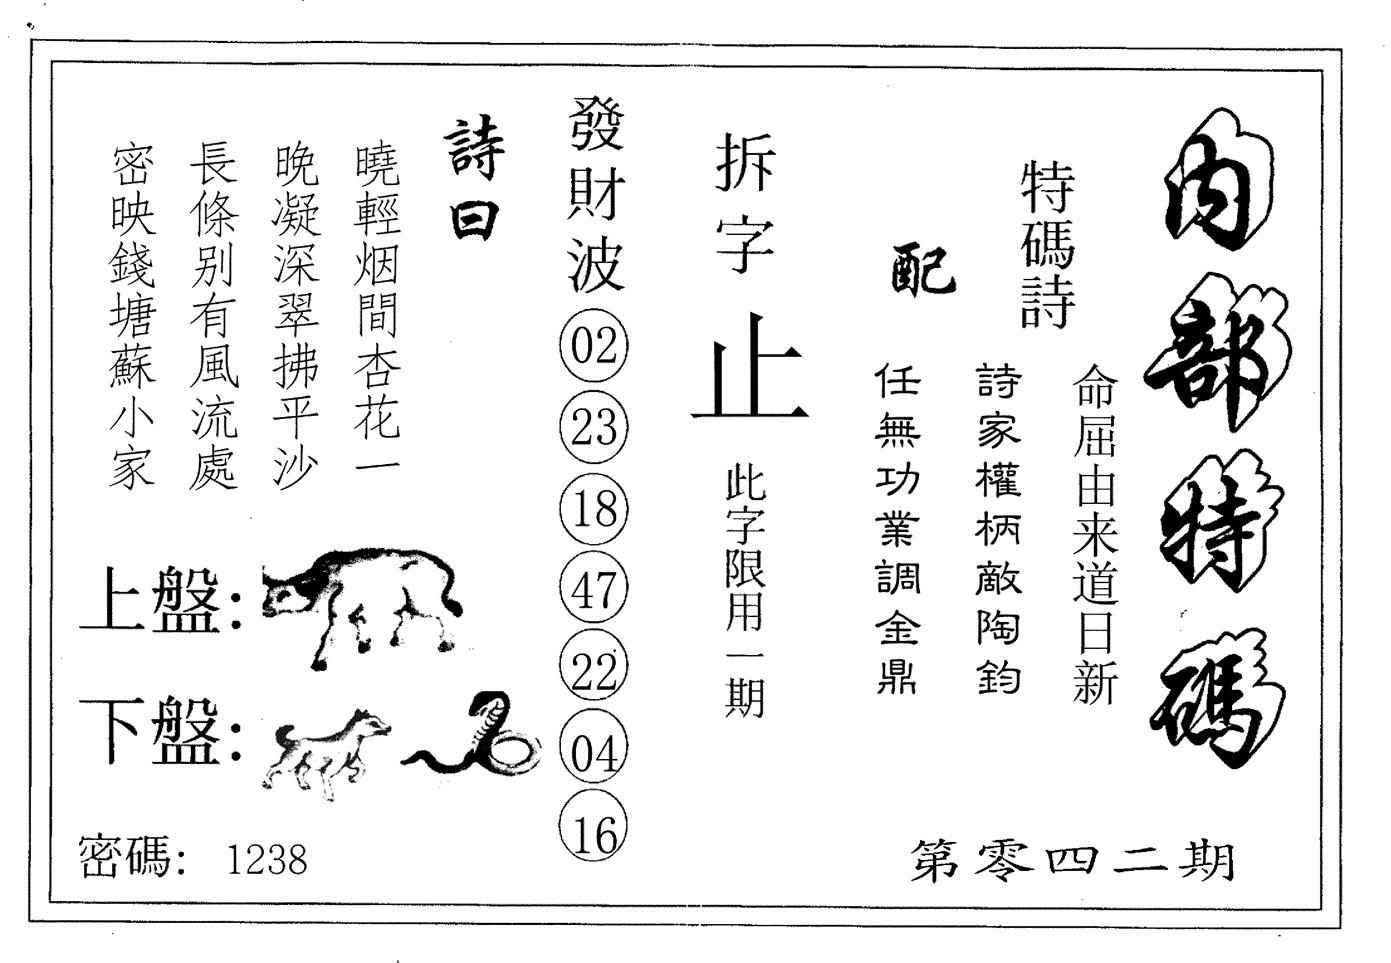 内部特碼
特碼詩
命屈由来道日新
詩家權柄敵陶鈞
配
任無功業調金鼎
拆字
止
此字限用一期
發財波
02
23
18
47
22
04
16
詩曰
曉輕烟間杏花一
晚凝深翠拂平沙
長條别有風流處
密映錢塘蘇小家
上盤:
下盤:
密碼: 1238
第零四二期